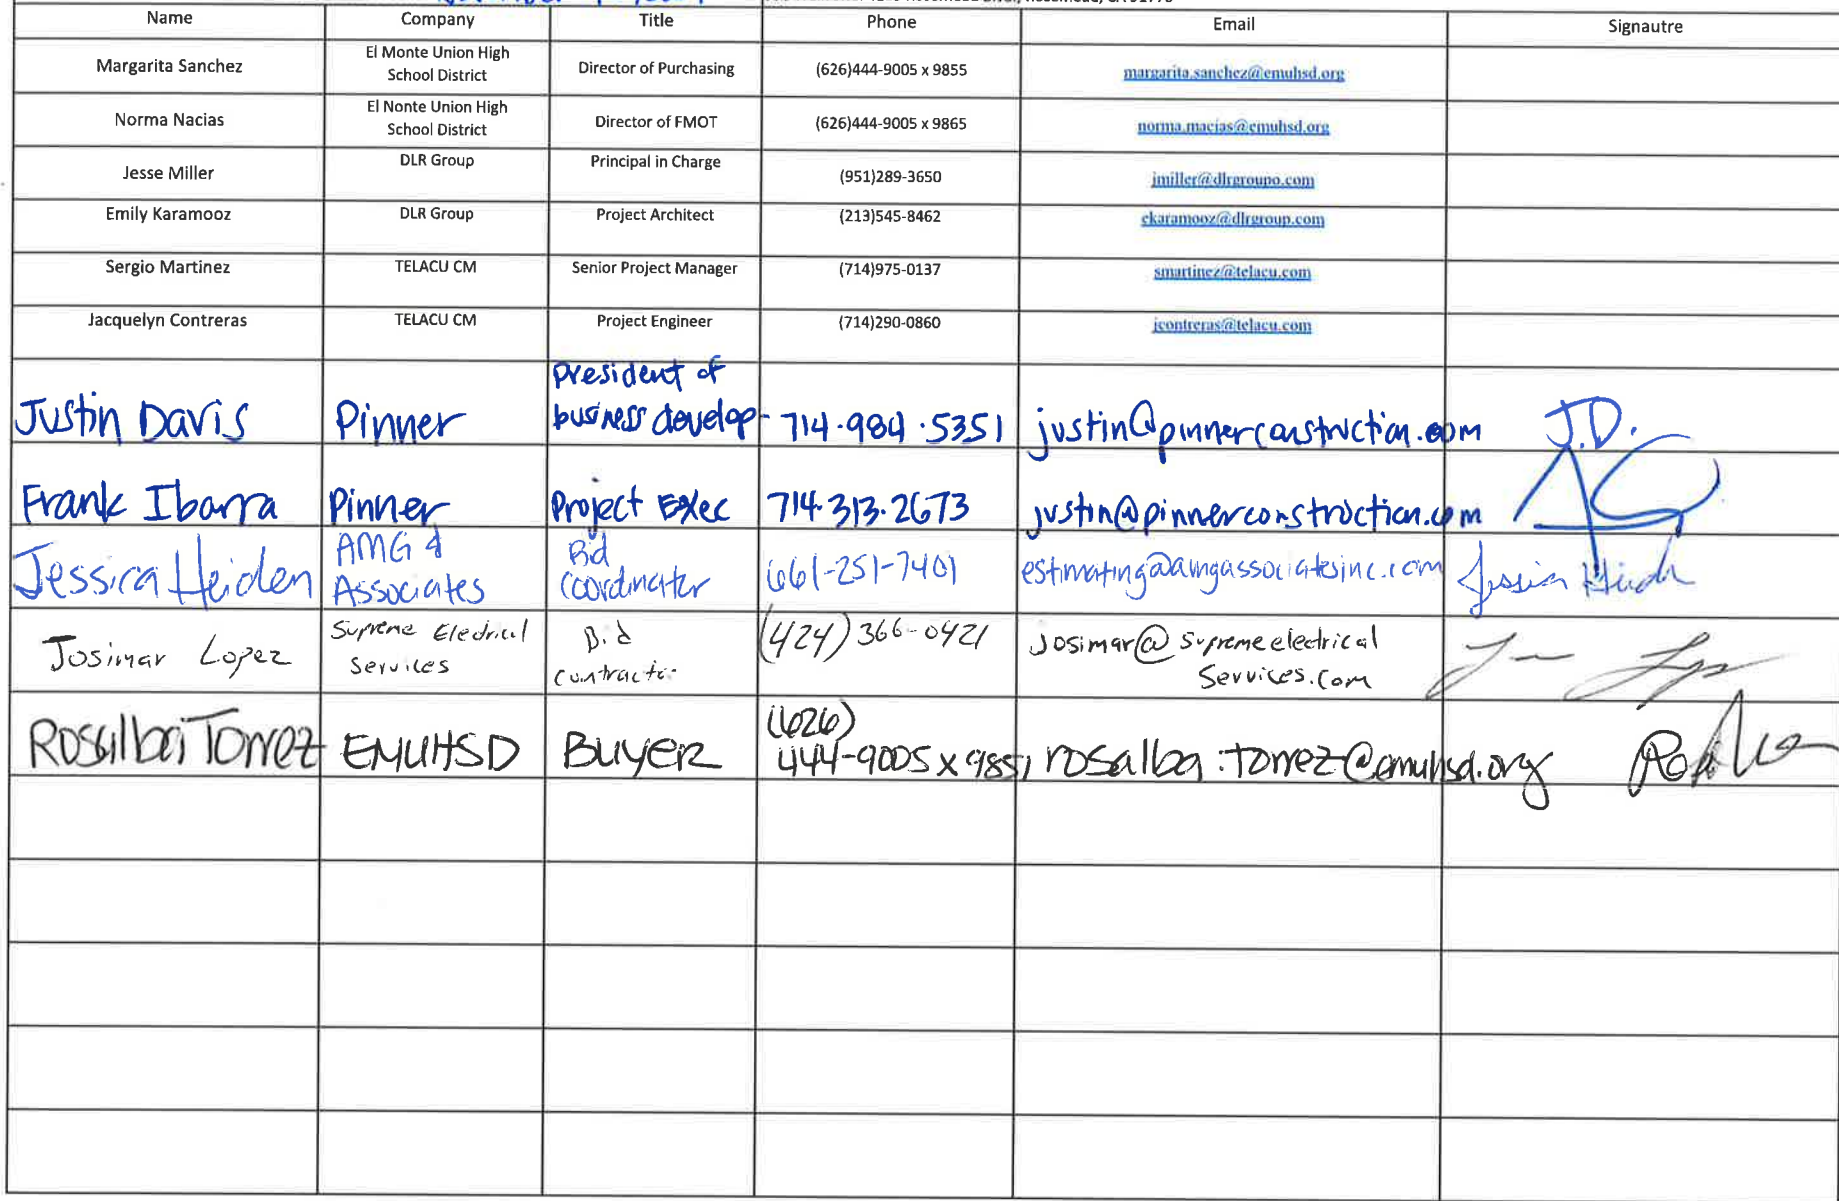 Name Company Title Phone Email Signautre
Margarita Sanchez El Monte Union High School District Director of Purchasing (626)444-9005 x 9855 margarita.sanchez@emuhsd.org
Norma Nacias El Nonte Union High School District Director of FMOT (626)444-9005 x 9865 norma.macias@emuhsd.org
Jesse Miller DLR Group Principal in Charge (951)289-3650 jmiller@dlrgroupo.com
Emily Karamooz DLR Group Project Architect (213)545-8462 ekaramooz@dlrgroup.com
Sergio Martinez TELACU CM Senior Project Manager (714)975-0137 smartinez@telacu.com
Jacquelyn Contreras TELACU CM Project Engineer (714)290-0860 jcontreras@telacu.com
Justin Davis Pinner president of business develop- 714.984.5351 justin@pinnerconstruction.com J.D.
Frank Ibarra Pinner Project Exec 714.313.2673 justin@pinnerconstruction.com
Jessica Heiden AMG & Associates Bid Coordinator 661-251-7401 estimating@amgassociatesinc.com
Josimar Lopez Supreme Electrical Services Bid Contractor (424) 366-0421 Josimar@supremeelectrical Services.com
Rosalba Torrez EMUHSD Buyer (626) 444-9005 x 9851 rosalba.torrez@emuhsd.org